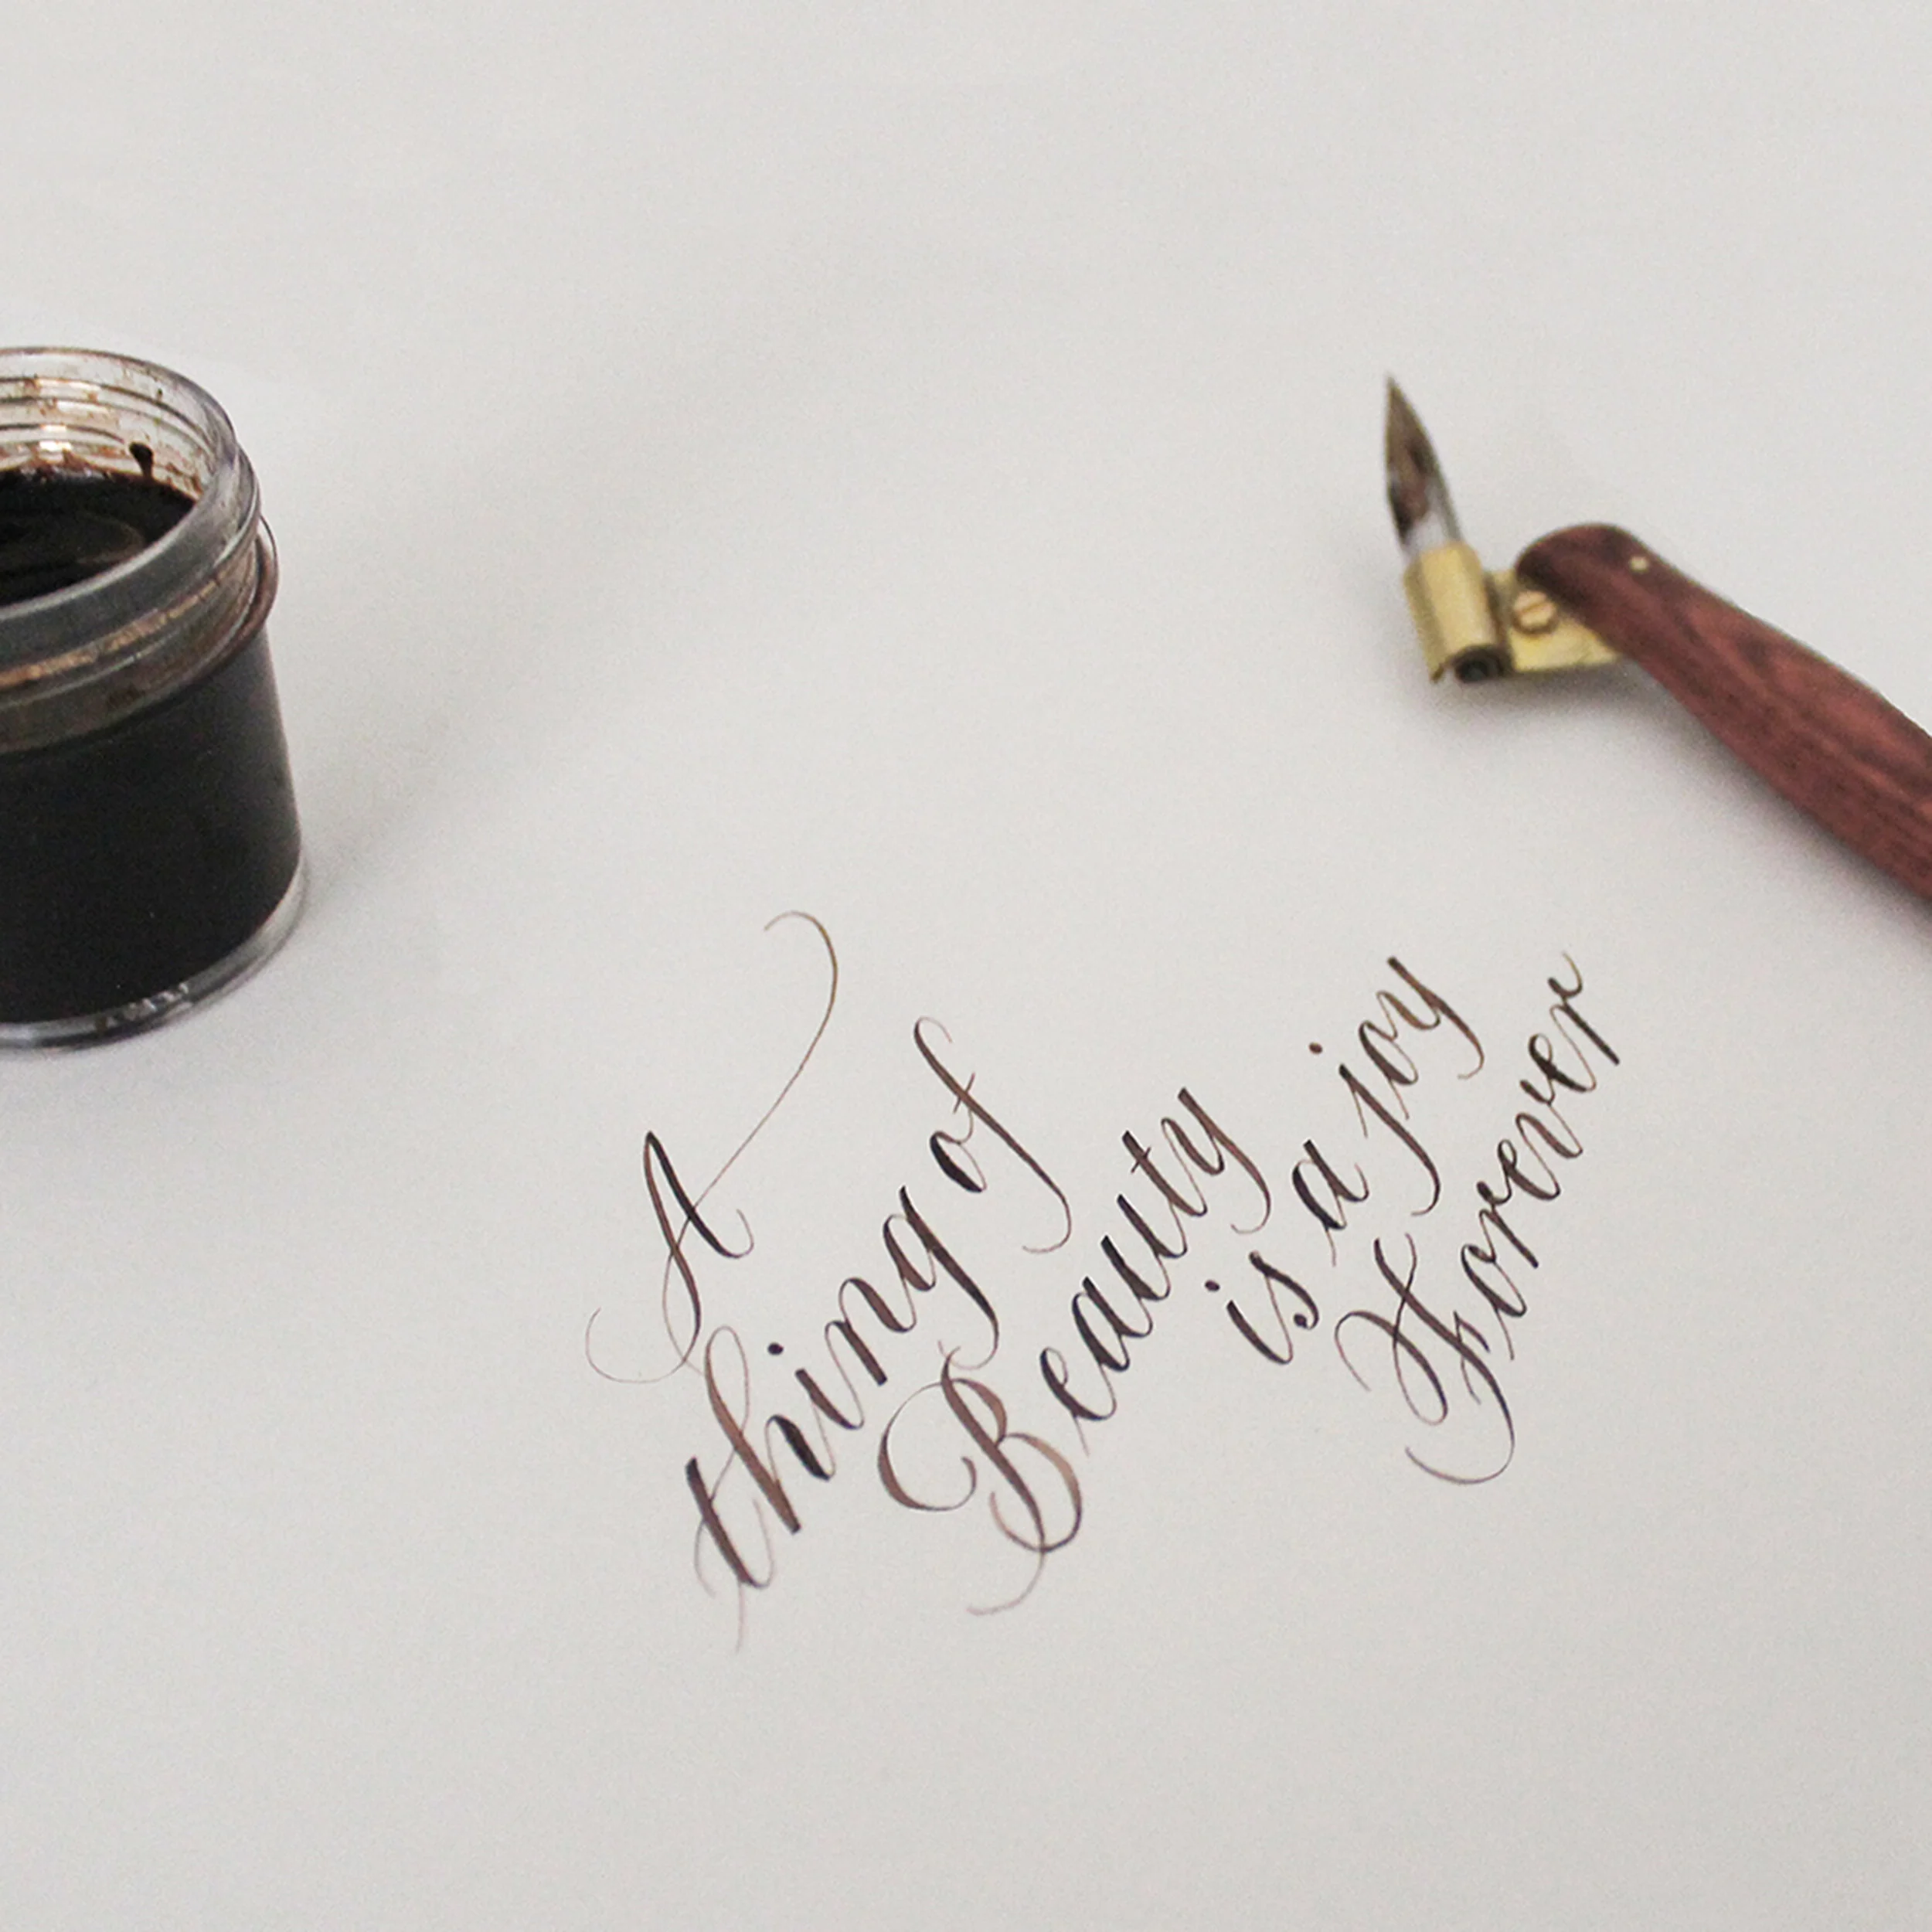 A
thing of
Beauty
is a joy
Forever